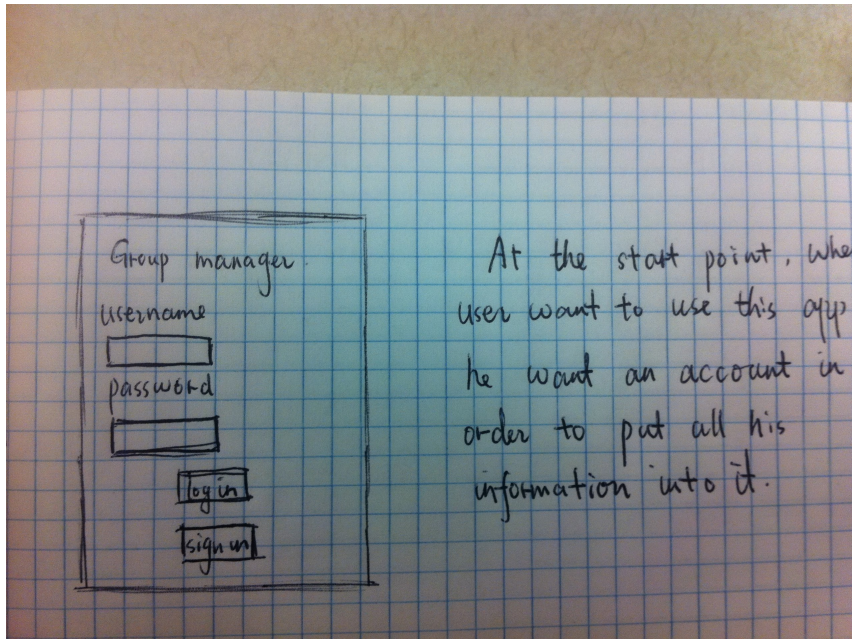 Group manager.
username
password
log in
sign in
At the start point, whe
user want to use this app
he want an account in
order to put all his
information into it.